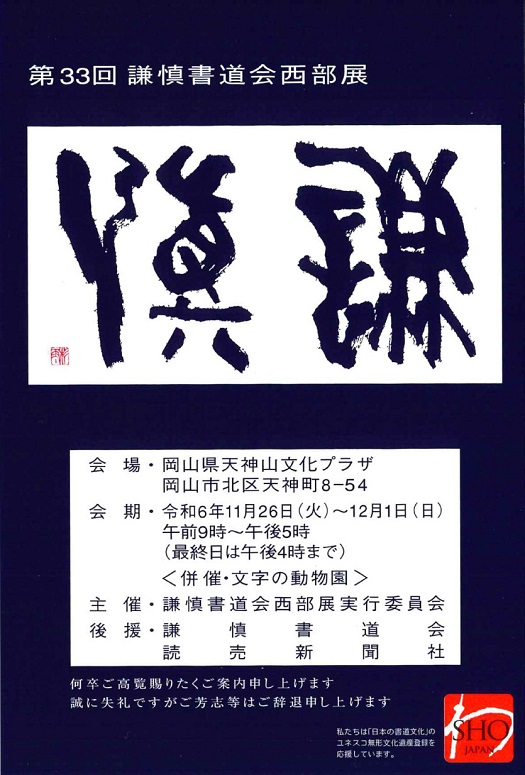 第33回 謙慎書道会西部展
謙慎
会場・岡山県天神山文化プラザ
岡山市北区天神町8-54
会期・令和6年11月26日(火)～12月1日(日)
午前9時～午後5時
(最終日は午後4時まで)
＜併催・文字の動物園＞
主催・謙慎書道会西部展実行委員会
後援・謙慎書道会
読売新聞社
何卒ご高覧賜りたくご案内申し上げます
誠に失礼ですがご芳志等はご辞退申し上げます
私たちは「日本の書道文化」の
ユネスコ無形文化遺産登録を
応援しています。
SHO
JAPAN